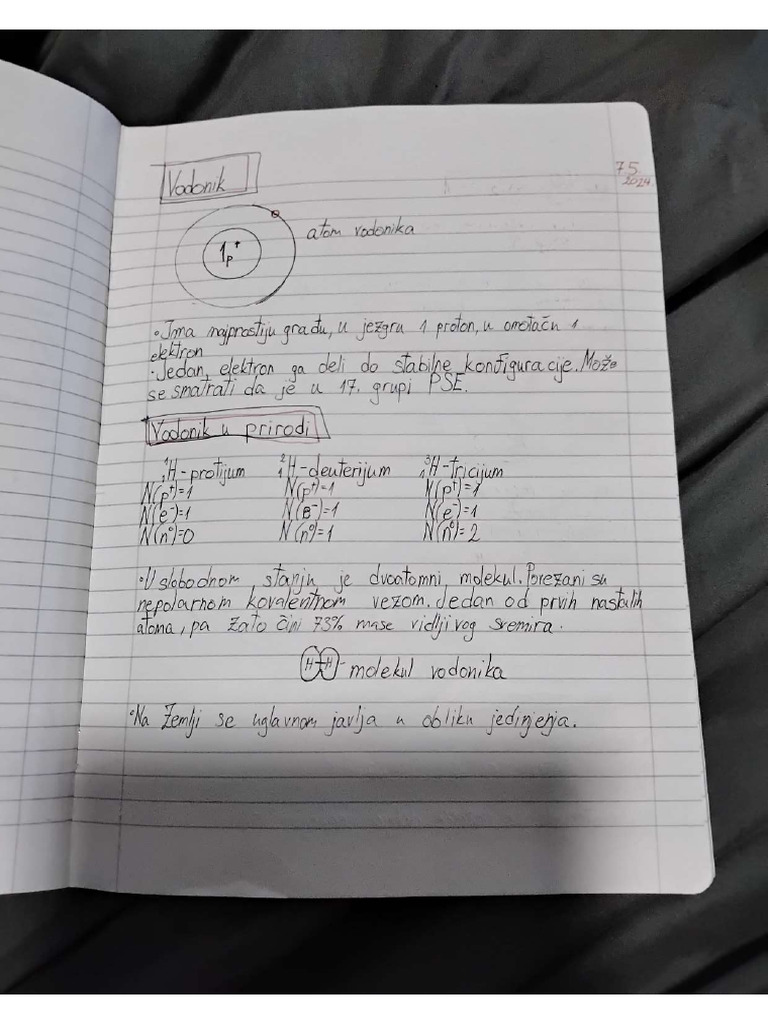 75
2024.
Vodonik
1p⁺
atom vodonika
•Ima najprostiju građu, u jezgru 1 proton, u omotaču 1
elektron
•Jedan, elektron ga deli do stabilne konfiguracije. Može
se smatrati da je u 17. grupi PSE.
Vodonik u prirodi
¹₁H-protijum ²₁H-deuterijum ³₁H-tricijum
N(p⁺)=1 N(p⁺)=1 N(p⁺)=1
N(e⁻)=1 N(e⁻)=1 N(e⁻)=1
N(n⁰)=0 N(n⁰)=1 N(n⁰)=2
•U slobodnom, stanju je dvoatomni, molekul. Povezani su
nepolarnom kovalentnom vezom. Jedan od prvih nastalih
atoma, pa zato čini 73% mase vidljivog svemira.
H-H - molekul vodonika
•Na Zemlji se uglavnom javlja u obliku jedinjenja.